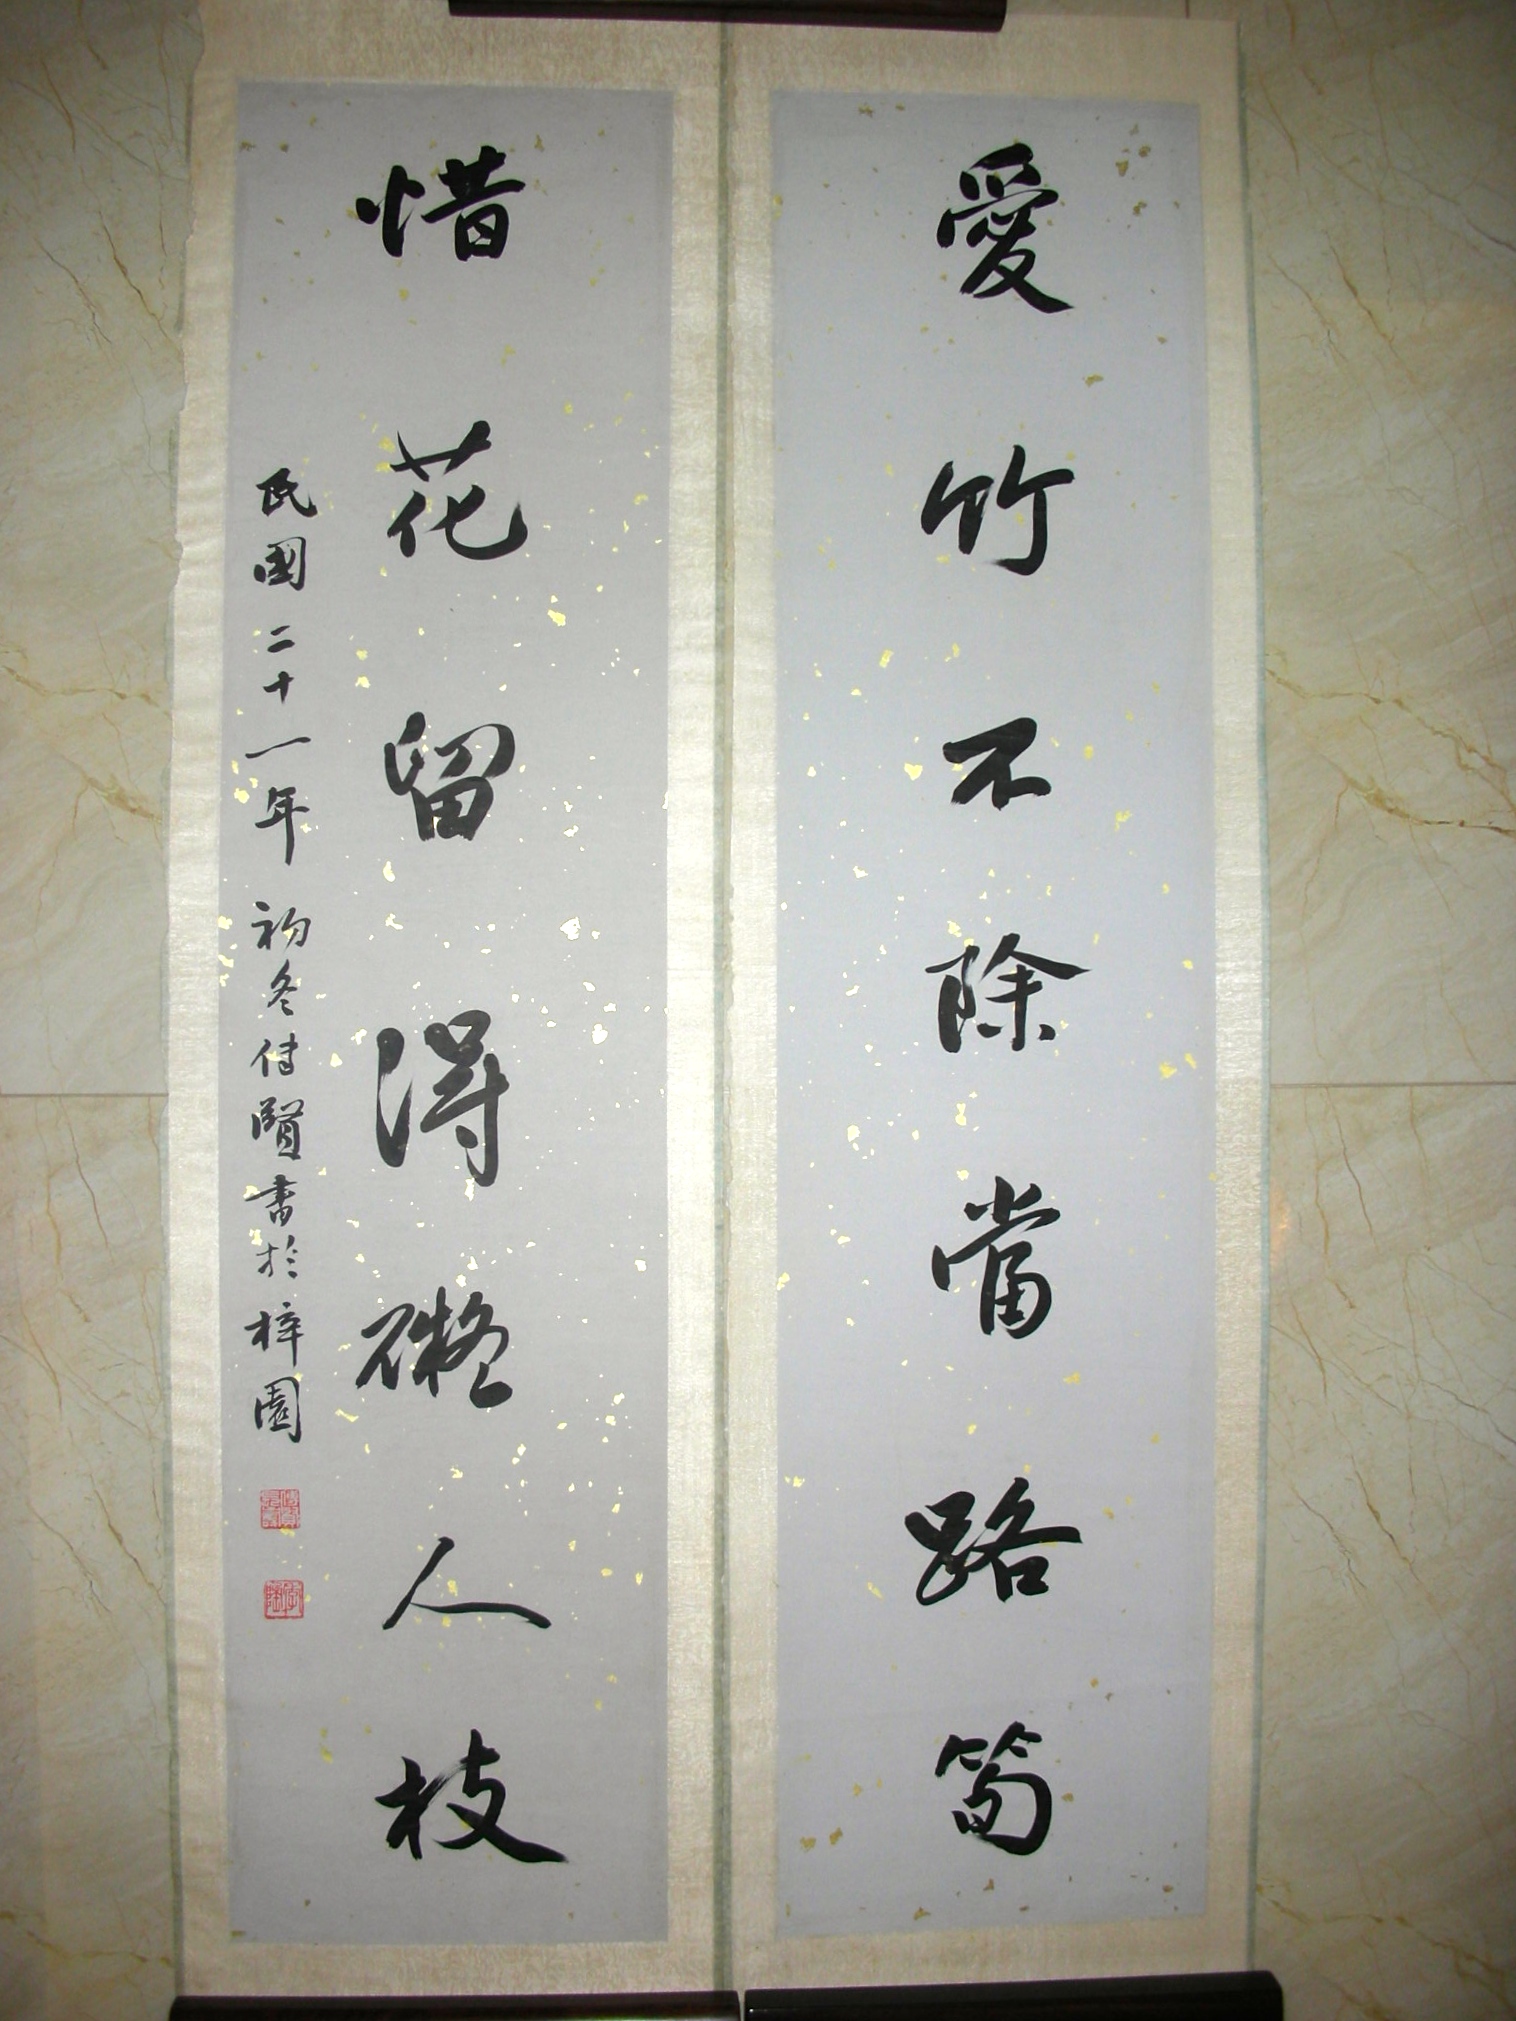 愛竹不除當路筍
惜花留得礙人枝
民國二十一年初冬付賢書於梓園